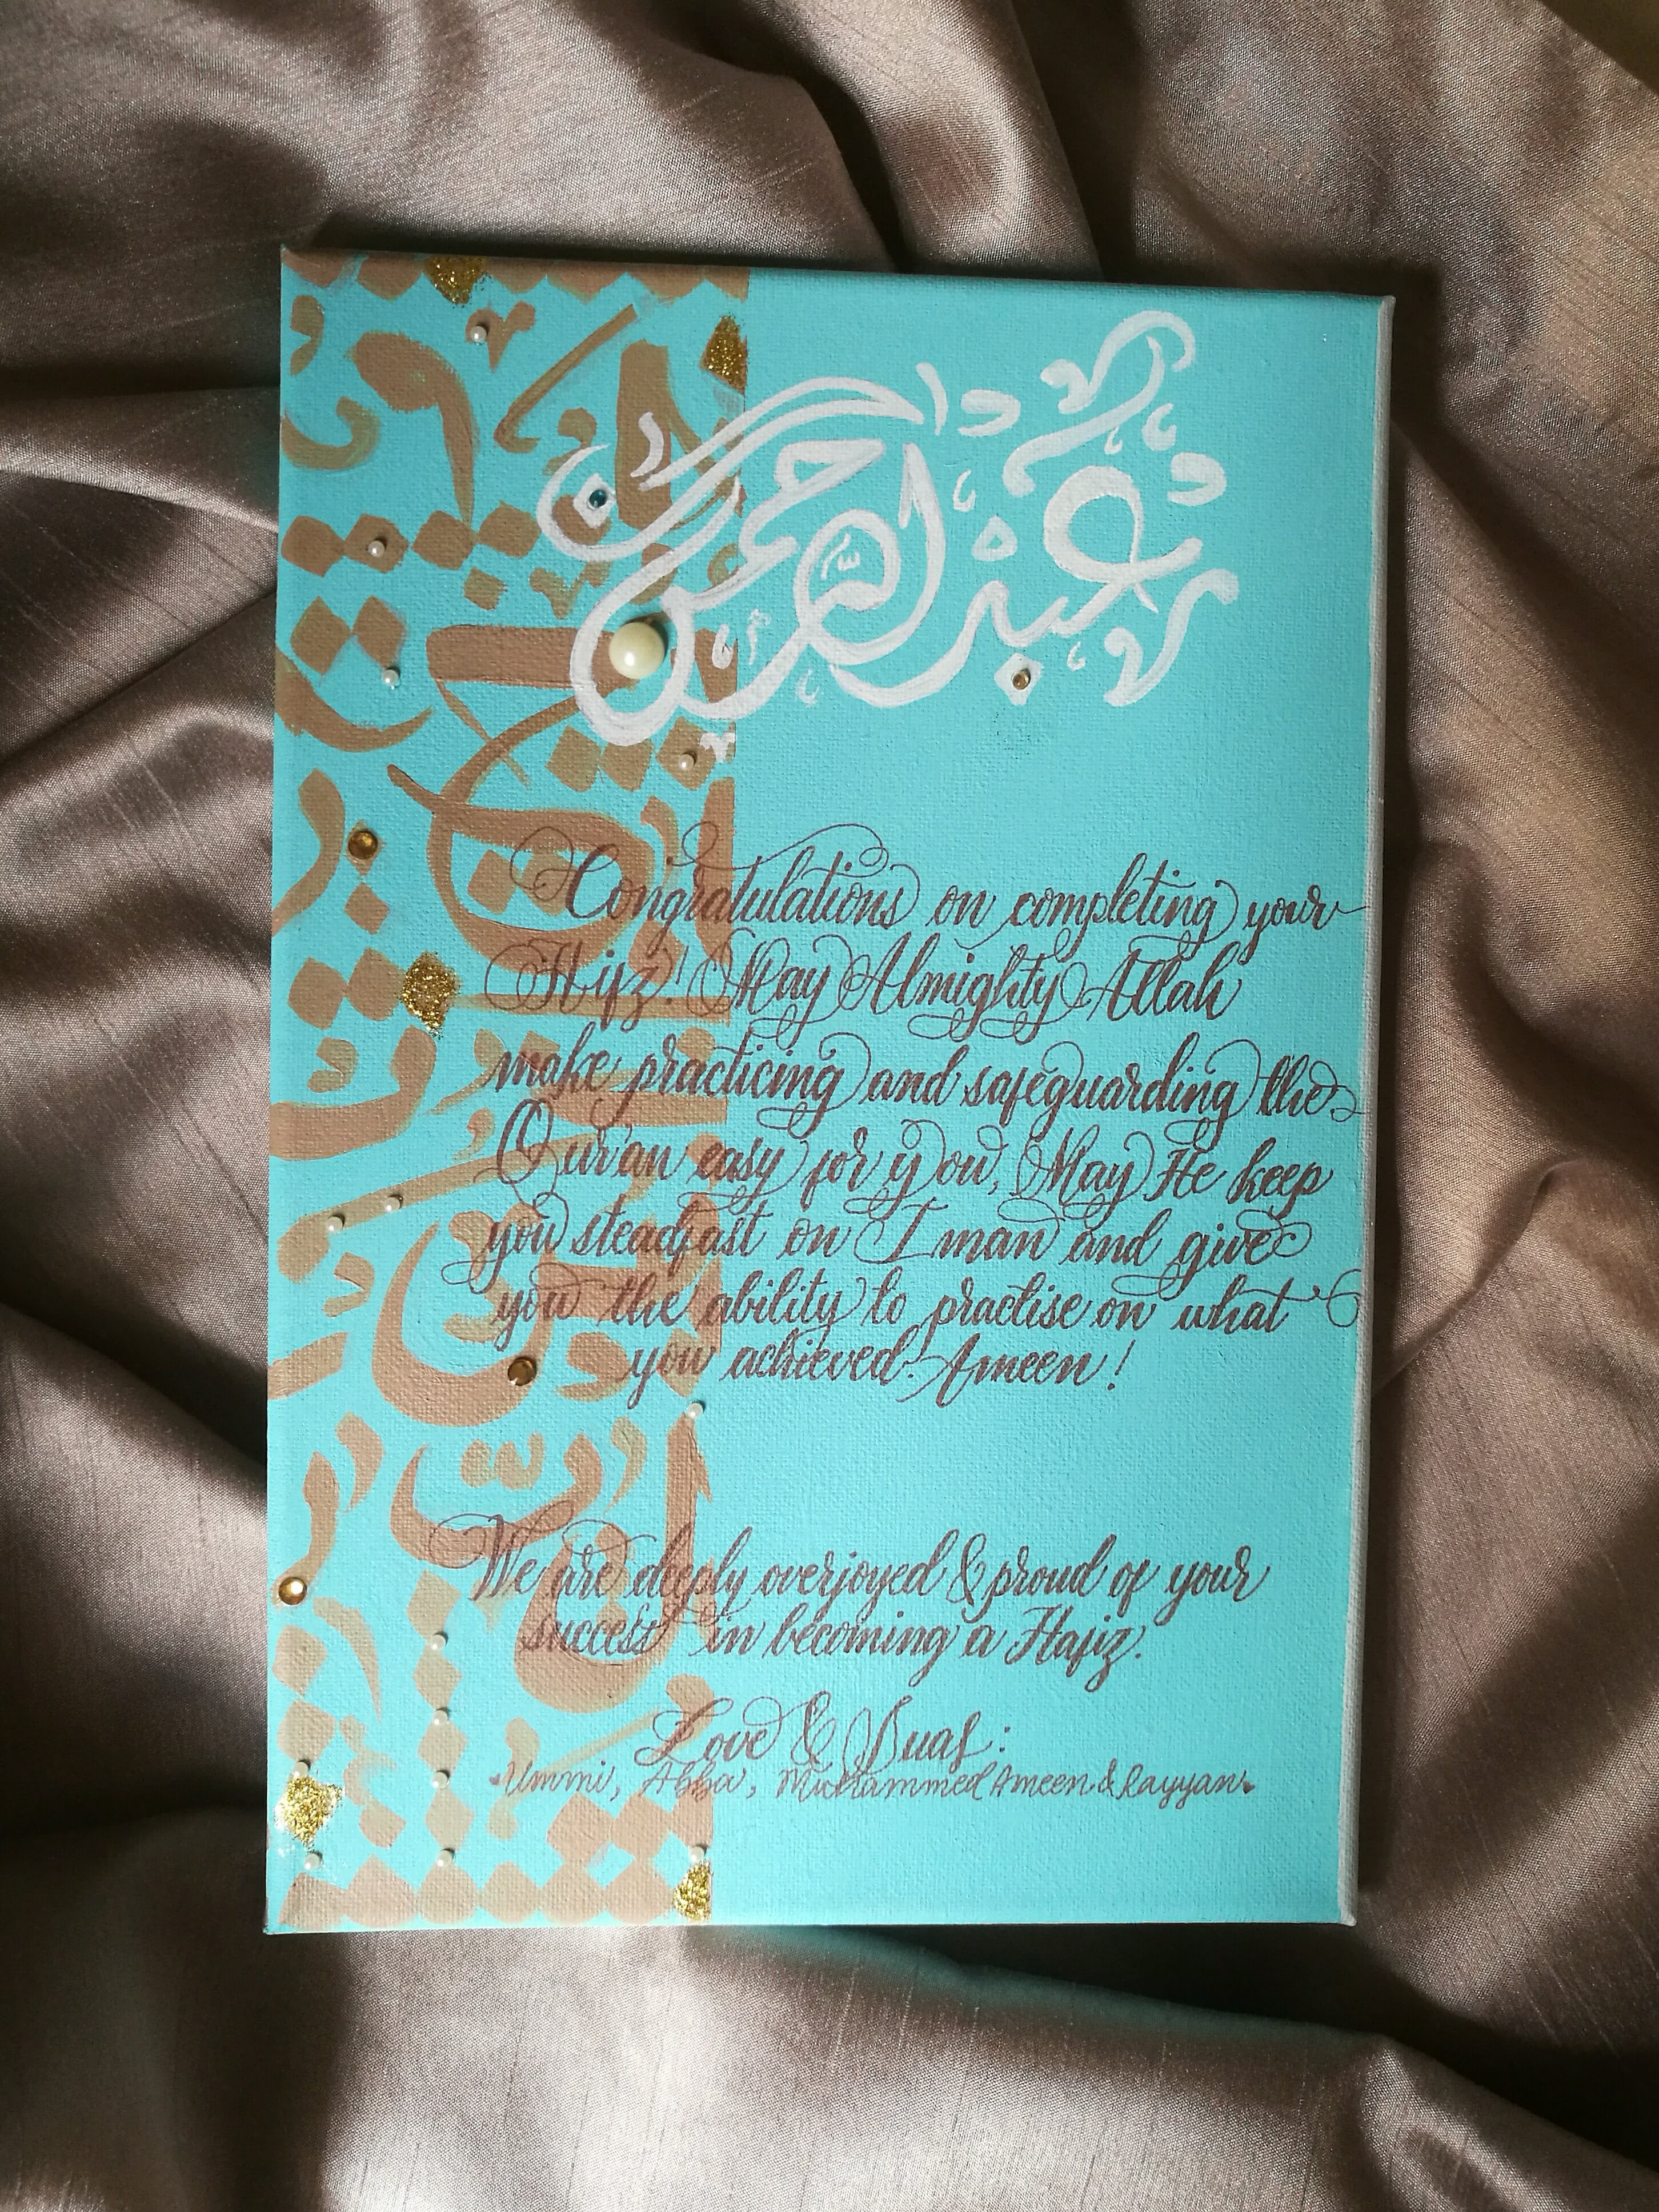 عبد الرحمن
Congratulations on completing your
Hifz! May Almighty Allah
make practicing and safeguarding the
Qur'an easy for you, May He keep
you steadfast on Iman and give
you the ability to practise on what
you achieved. Ameen!
We are deeply overjoyed & proud of your
success in becoming a Hafiz.
Love & Duas:
Ummi, Abba, Muhammed Ameen & Rayyan